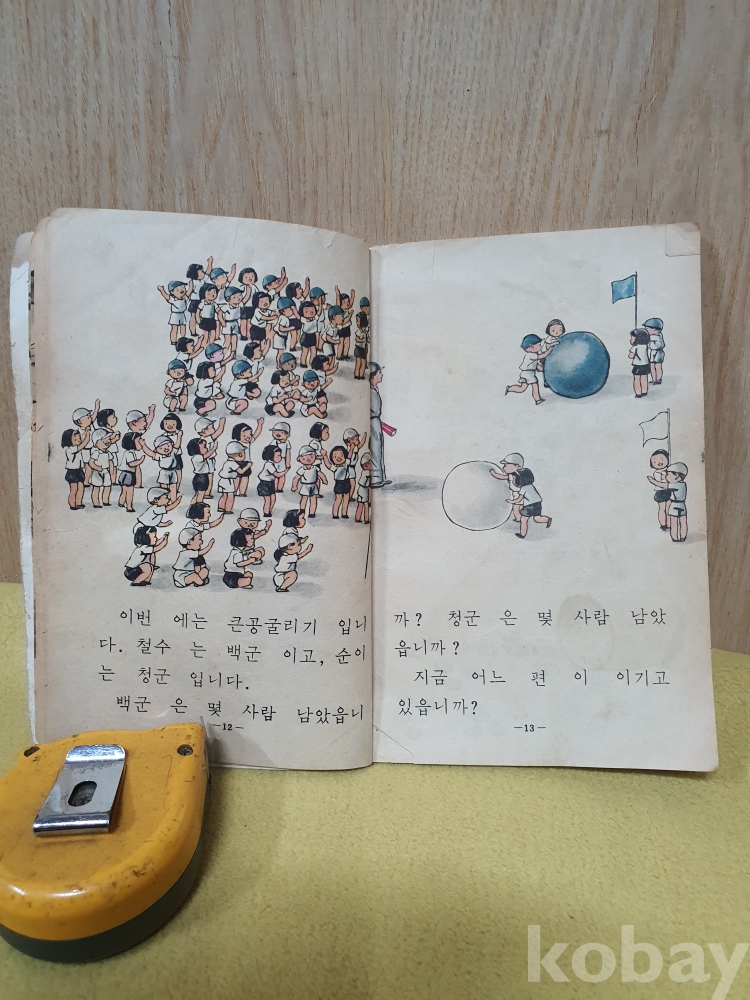 이번 에는 큰공굴리기 입니
다. 철수 는 백군 이고, 순이
는 청군 입니다.
백군 은 몇 사람 남았읍니
—12—
까? 청군 은 몇 사람 남았
읍니까?
지금 어느 편 이 이기고
있읍니까?
—13—
kobay